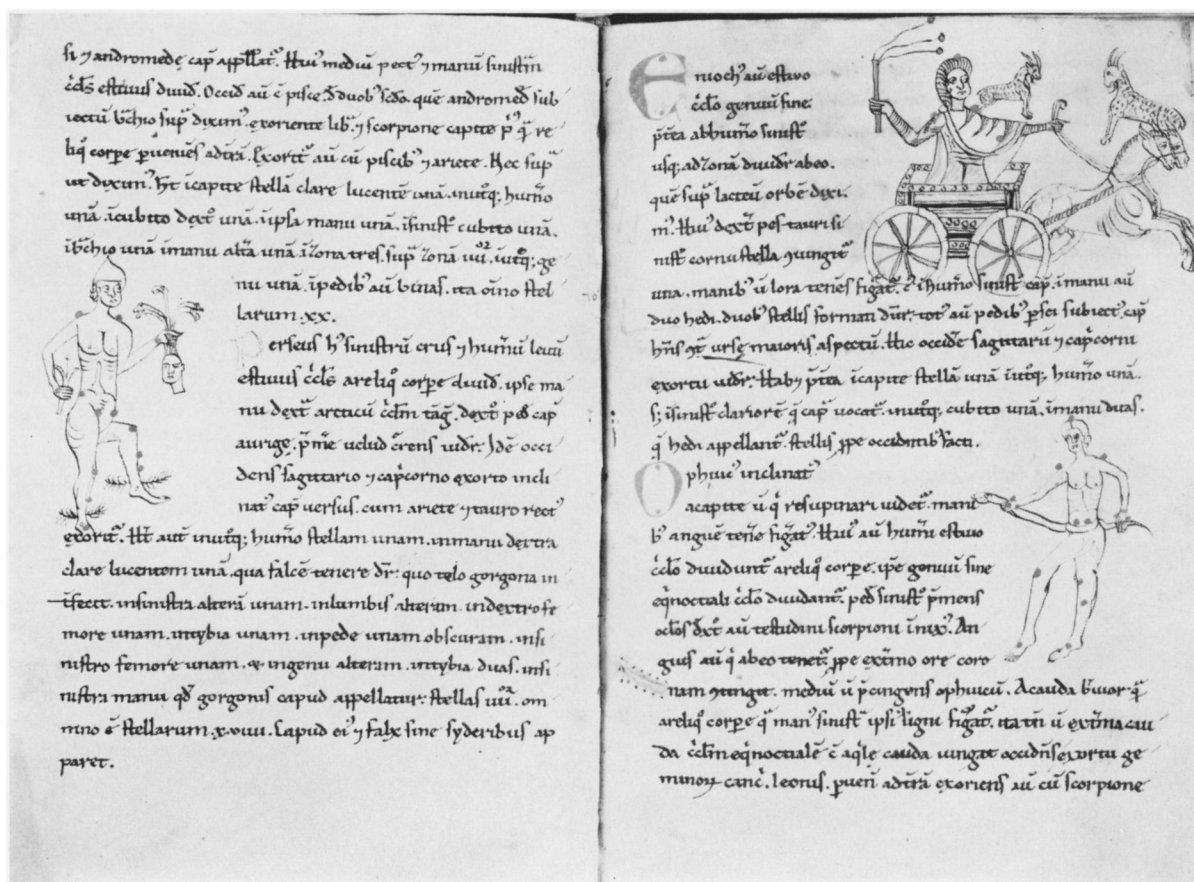 si ⁊ andromedę cap̄ appellat᷑. Hui᷒ mediū pect᷒ ⁊ manū sinistrā
estivus divid̄. Occid̄ aū ē pisce. d̄ duob᷒ sc̄do. quē andromed̄ sub
iectū sup̄ dixim᷒. exoriente lib̄ ⁊ scorpione capite re
liq̄ corpe ad Exorit᷑ aū cū piscib᷒ ⁊ ariete. Hec sup̄
ut dixim᷒. Ht̄ īcapite stellā clare lucentē unā. inutq; hum̄o
unā. īcubito dext̄o unā. īipsa manu unā. īsinist̄o cubito unā.
unā īmanu alt̄ā unā. īzona tres. sup̄ zonā inutq; ge
nu unā. īpedib᷒ aū binas. ita oīno stel
larum .xx.
Perseus sinistrū crus ⁊ hum̄ū levū
estivus areliq̄ corpe divid̄. ipse ma
nu dext̄ arcticū tāg̃. dext̄o ped̄ cap̄
aurigę. velud videt᷑. Idē occi
dens sagittario ⁊ cap̄corno exorto incli
nat᷒ cap̄ versus. cum ariete ⁊ tauro rect᷒
exorit᷑. Ht̄ aut̄ inutq; hum̄o stellam unam. inmanu dextra
clare lucentem unā. qua falcē tenere dr̄. quo telo gorgona in
tfecit. insinistra alterā unam. inlumbis alteram. indextro fe
more unam. intybia unam. inpede unam obscuram. insi
nistro femore unam. & ingenu alteram. intybia duas. insi
nistra manu qd̄ gorgonis capud appellatur. stellas om
nino ē stellarum Capud ei᷒ ⁊ falx sine syderibus ap
paret.
Enioch᷒ aū estivo
genuū fine
p̄t̄ea abhum̄o sinist̄o
usq; adzonā dividr̄ abeo.
quē sup̄ lacteū orbē dixi
m᷒. Hui᷒ dext̄ pes tauri si
nist̄ cornu stella ⁊iungit᷑
una. manib᷒ ū lora tenēs figat᷑. ē īhum̄o sinist̄ cap̄. īmanu aū
duo hedi. duob᷒ stellis formari tot᷒ aū pedib᷒ p̄sei subiect᷒. cap̄
hn̄s ursę maioris aspectū. Hic occidē sagittarū ⁊ cap̄cornu
exortu vidr̄. Hab̄ īcapite stellā unā. īutq; hum̄o unā.
s; īsinist̄ clariorē q̄ cap̄ vocat᷑. inutq; cubito unā. īmanu duas.
q̄ hedi appellant᷑. stellis ꝓpe occidentib᷒ facti.
Ophiuc᷒ inclinat᷒
acapite ū q̄ resupinari videt᷑. mani
b᷒ anguē tenē figat᷑. Hui᷒ aū hum̄i estivo
dividunt᷑ areliq̄ corpe. ipe genuū fine
eq̄noctiali dividant᷑. ped̄ sinist̄o
oclos dext̄o aū testudini scorpioni īnix᷒. An
guis aū q̄ abeo tenet᷑. ꝓpe ext̄mo ore coro
nam ⁊tingit. mediū ū p̄cingens ophiucū. Acauda q̄
areliq̄ corpe q̄ man᷒ sinist̄ ipsi ligni figat᷑. ita tn̄ ū ext̄ma cau
da eq̄noctialē ē aq̄le cauda iungat occidn̄s exortu ge
minoꝝ canc̄. leonis. adt̄rā exoriens aū cū scorpione